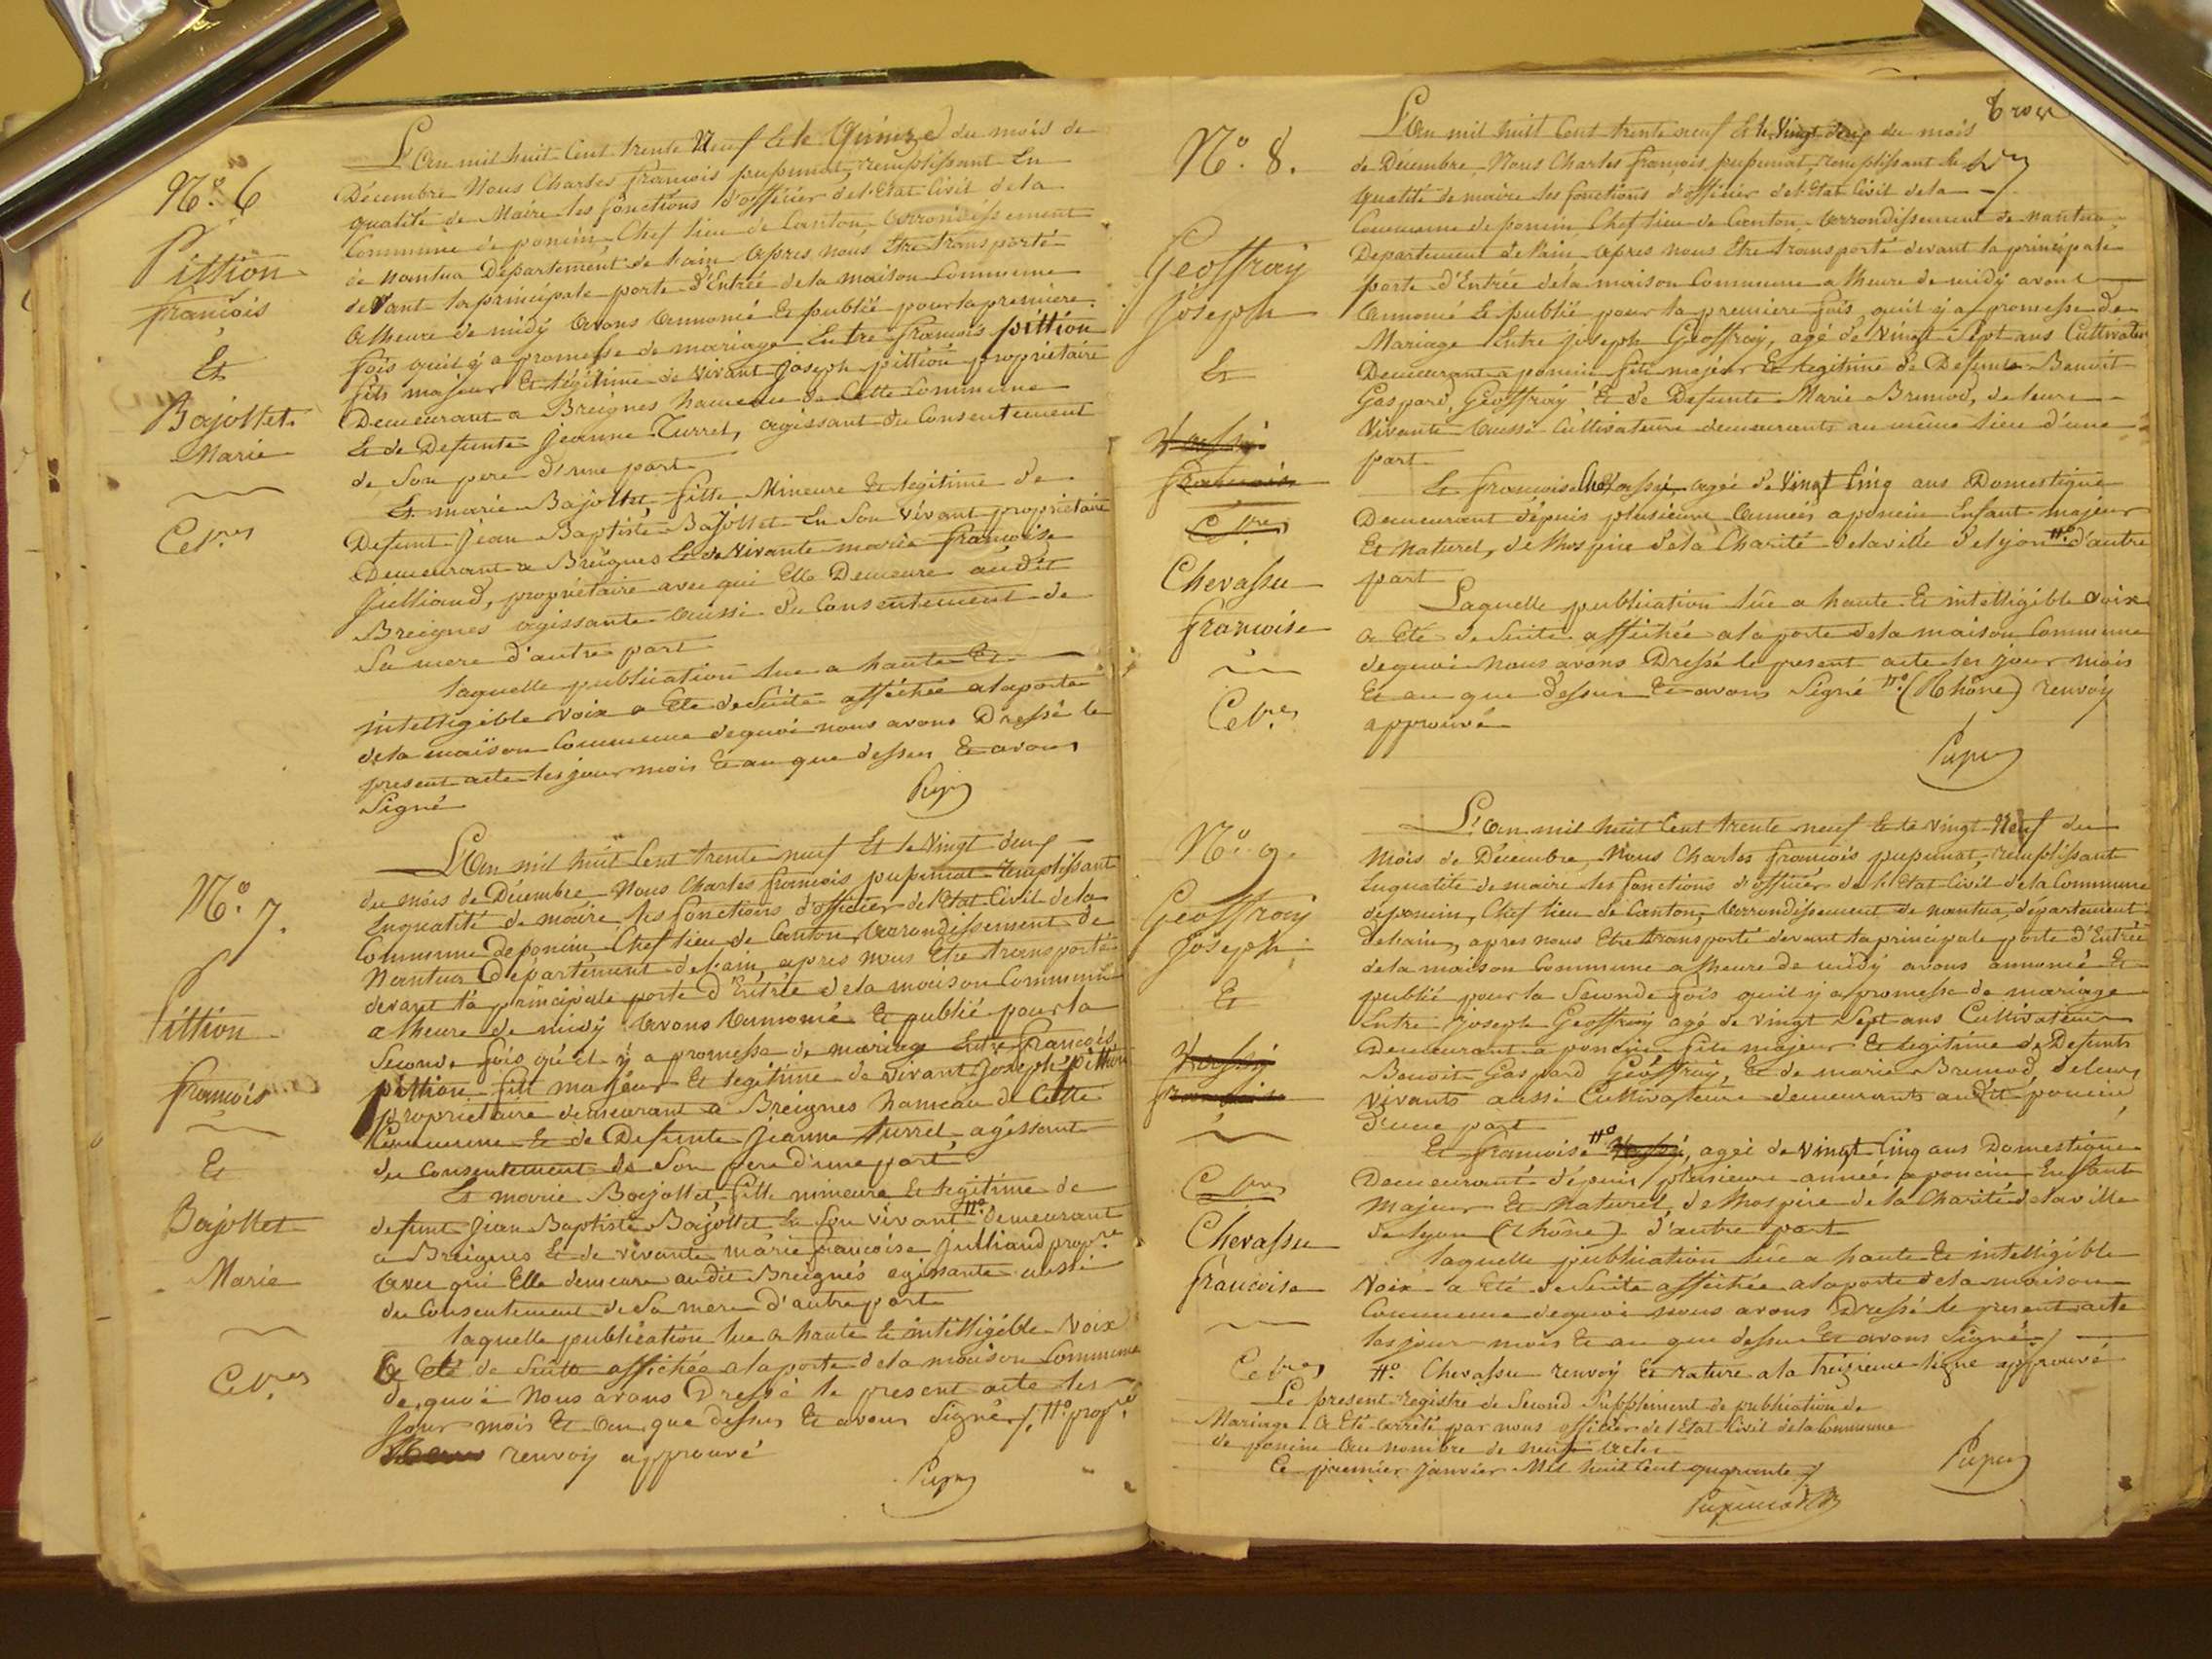 N.o 6
Pittion
francois
Et
Bajollet
Marie
Cel.res
L'An mil huit Cent trente Neuf Et le Quinze du mois de
Décembre Nous Charles francois pupunat, remplissant En
qualité de Maire les fonctions d'officier de l'Etat Civil dela
Commune de poncin, Chef lieu de Canton, Arrondissement
de Nantua Département de l'ain Apres nous Etre transporté
devant la principale porte d'Entrée dela maison Commune
a lheure de midy Avons Annoncé Et publié pour la premiere
fois quil y a promesse de mariage Entre francois pittion
fils majeur Et légitime de Vivant joseph pittion propriétaire
Demeurant a Breignes hameau de Cette Commune
Et de Defunte Jeanne Turrel, agissant du Consentement
de Son pere d'une part
Et marie Bajollet, fille Mineure Et légitime de
Defunt Jean Baptiste Bajollet En Son Vivant propriétaire
Demeurant a Breignes Et de Vivante marie francoise
Julliand, propriétaire avec qui Elle Demeure audit
Breignes agissante aussi du Consentement de
Sa mere d'autre part
laquelle publication lue a haute Et
intelligible voix a Eté deSuite affichée alaporte
dela maison Commune dequoi nous avons Dressé le
present acte les jour mois Et an que dessus Et avons
Signé
Pup
N.o 7.
Pittion
francois
Et
Bajollet
Marie
Cel.res
L'An mil huit Cent trente neuf Et le Vingt deux
du mois de Décembre Nous Charles francois pupunat remplissant
Enqualité de maire les fonctions d'officier de l'Etat Civil dela
Commune de poncin Chef lieu de Canton, Arrondissement de
Nantua Département de l'ain apres nous Etre transporté
devant la principale porte d'Entrée dela maison Commune
a lheure de midy Avons Annoncé Et publié pour la
Seconde fois qu'il y a promesse de mariage Entre francois
pittion fils majeur Et legitime de vivant Joseph pittion
propriétaire demeurant a Breignes hameau de Cette
Commune Et de Defunte Jeanne turrel agissant
du Consentement de Son pere d'une part
Et marie Bajollet, fille mineure Et legitime de
defunt Jean Baptiste Bajollet En Son vivant #o demeurant
a Breignes Et de vivante marie francoise Julliand prop.re
Avec qui Elle demeure audit Breignes agissante aussi
du Consentement de Sa mere d'autre part
laquelle publication lue a haute Et intelligible Voix
a Eté de Suite affichée alaporte dela maison Commune
dequoi Nous avons Dressé le present acte les
Jour mois Et An que dessus Et avons Signé /. #o prop.re
renvoy approuvé
Pup
N.o 8.
Geoffray
Joseph
Et
francoise
Cel.res
Chevassu
francoise
Cel.res
L'An mil huit Cent trente neuf Et le Vingt deux du mois
de Décembre, Nous Charles francois pupunat, remplissant En
qualité de maire les fonctions d'officier de l'Etat Civil dela
Commune de poncin Chef lieu de Canton, Arrondissement de nantua
Departement de l'ain Apres nous Etre transporté devant la principale
porte d'Entrée dela maison Commune a lheure de midy avons
Annoncé Et publié pour la premiere fois quil y a promesse de
Mariage Entre joseph Geoffray, agé de Vingt Sept ans Cultivateur
Demeurant a poncin fils majeur Et legitime de Defunt Benoit
Gaspard, Geoffray Et de Defunte Marie Brunod, de leurs
Vivants Aussi Cultivateurs demeurants au même lieu d'une
part
Et francoise Chevassu, agée de Vingt Cinq ans Domestique
Demeurant dépuis plusieurs Années a poncin Enfant majeur
Et Naturel, de l'hospice dela Charité dela ville de lyon #o d'autre
part
Laquelle publication lûe a haute Et intelligible Voix
a Eté de Suite affichée a la porte dela maison Commune
dequoi nous avons Dressé le present acte les jour mois
Et an que dessus Et avons Signé #o (Rhône) renvoy
approuvé
Pupu
N.o 9.
Geoffray
Joseph
Et
francoise
Cel.res
Chevassu
francoise
Cel.res
L'An mil huit Cent trente neuf Et le Vingt Neuf du
Mois de Décembre, Nous Charles francois pupunat, remplissant
Enqualité de maire les fonctions d'officier de l'Etat Civil dela Commune
de poncin, Chef lieu de Canton, Arrondissement de nantua, département
de l'ain, apres nous Etre transporté devant la principale porte d'Entrée
dela maison Commune a lheure de midy avons annoncé Et
publié pour la Seconde fois quil y a promesse de mariage
Entre Joseph Geoffray agé de vingt Sept ans Cultivateur
Demeurant a poncin fils majeur Et legitime de Defunts
Benoit Gaspard Geoffray, Et de marie Brunod, de leurs
vivants aussi Cultivateurs demeurants audit poncin
d'une part
Et francoise #o, agée de Vingt Cinq ans Domestique
Demeurant dépuis plusieurs années a poncin Enfant
Majeur Et Naturel, de l'hospice dela Charité dela ville
de lyon (Rhône) d'autre part
laquelle publication lûe a haute Et intelligible
Voix a Eté de Suite affichée alaporte dela maison
Commune dequoi nous avons Dressé le present acte
les jour mois Et an que dessus Et avons Signé /
#o Chevassu renvoy Et rature a la treizieme ligne approuvé
Le present registre de Second Supplément de publication de
Mariage a Eté arrêté par nous officier de l'Etat Civil dela Commune
de poncin Au nombre de neuf actes
Ce premier janvier Mil huit Cent quarante /
Pupu
Pupunat